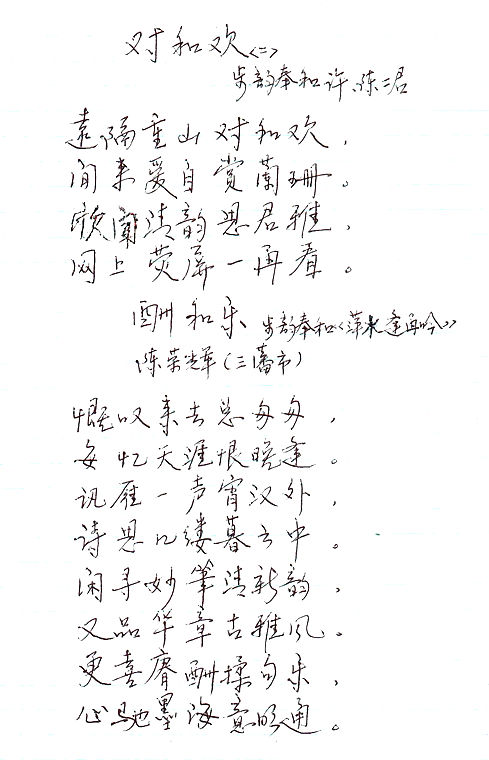 对和欢<二>
步韵奉和许、陈二君
远隔重山对和欢，
闲来爱自赏兰珊。
欣闻清韵思君雅，
网上荧屏一再看。
酬和乐 步韵奉和《萍水逢再吟》
陈荣辉(三藩市)
慨叹来去总匆匆，
每忆天涯恨晚逢。
讯雁一声霄汉外，
诗思几缕暮云中。
闲寻妙笔清新韵，
又品华章古雅风。
更喜赓酬揉句乐，
心驰墨海意皆通。